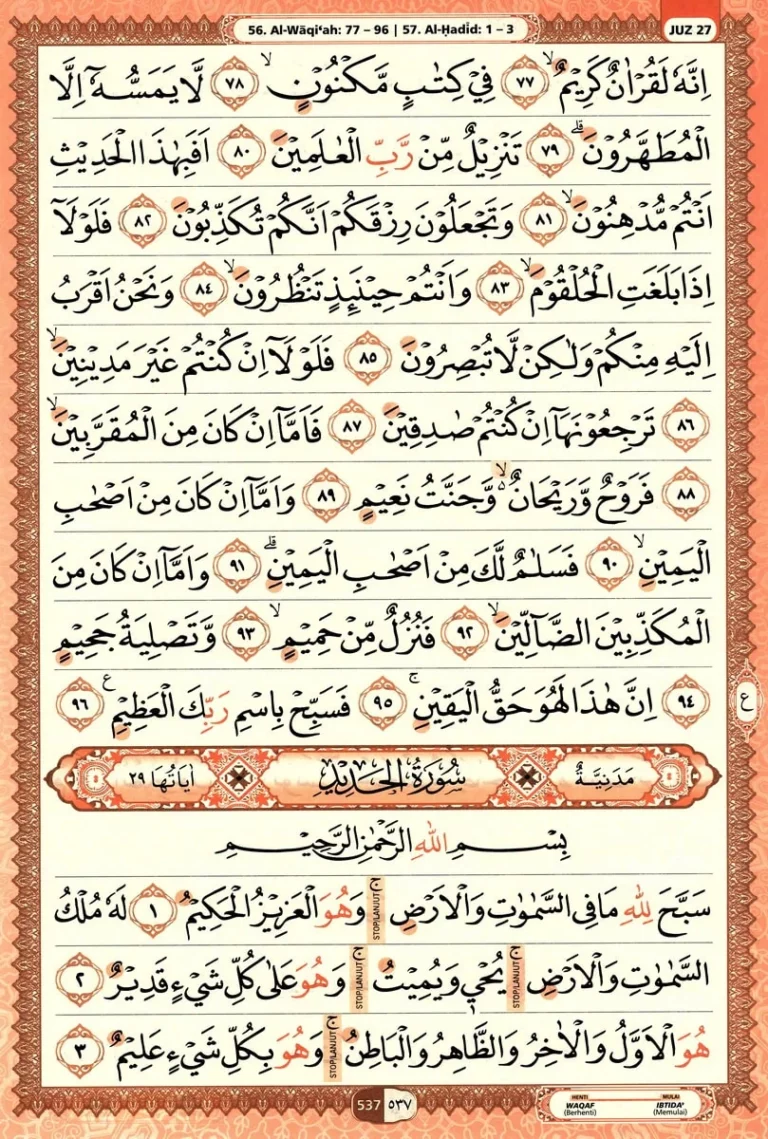 56. Al-Wāqi‘ah: 77 – 96 | 57. Al-Ḥadīd: 1 – 3
JUZ 27
اِنَّهٗ لَقُرْاٰنٌ كَرِيْمٌۙ ٧٧ فِيْ كِتٰبٍ مَّكْنُوْنٍۙ ٧٨ لَّا يَمَسُّهٗٓ اِلَّا
الْمُطَهَّرُوْنَۗ ٧٩ تَنْزِيْلٌ مِّنْ رَّبِّ الْعٰلَمِيْنَ ٨٠ اَفَبِهٰذَا الْحَدِيْثِ
اَنْتُمْ مُّدْهِنُوْنَۙ ٨١ وَتَجْعَلُوْنَ رِزْقَكُمْ اَنَّكُمْ تُكَذِّبُوْنَ ٨٢ فَلَوْلَآ
اِذَا بَلَغَتِ الْحُلْقُوْمَۙ ٨٣ وَاَنْتُمْ حِيْنَىِٕذٍ تَنْظُرُوْنَۙ ٨٤ وَنَحْنُ اَقْرَبُ
اِلَيْهِ مِنْكُمْ وَلٰكِنْ لَّا تُبْصِرُوْنَ ٨٥ فَلَوْلَآ اِنْ كُنْتُمْ غَيْرَ مَدِيْنِيْنَۙ
٨٦ تَرْجِعُوْنَهَآ اِنْ كُنْتُمْ صٰدِقِيْنَ ٨٧ فَاَمَّآ اِنْ كَانَ مِنَ الْمُقَرَّبِيْنَۙ
٨٨ فَرَوْحٌ وَّرَيْحَانٌ ەۙ وَّجَنَّتُ نَعِيْمٍ ٨٩ وَاَمَّآ اِنْ كَانَ مِنْ اَصْحٰبِ
الْيَمِيْنِۙ ٩٠ فَسَلٰمٌ لَّكَ مِنْ اَصْحٰبِ الْيَمِيْنِۗ ٩١ وَاَمَّآ اِنْ كَانَ مِنَ
الْمُكَذِّبِيْنَ الضَّاۤلِّيْنَۙ ٩٢ فَنُزُلٌ مِّنْ حَمِيْمٍۙ ٩٣ وَّتَصْلِيَةُ جَحِيْمٍ
٩٤ اِنَّ هٰذَا لَهُوَ حَقُّ الْيَقِيْنِۚ ٩٥ فَسَبِّحْ بِاسْمِ رَبِّكَ الْعَظِيْمِ ࣖ ٩٦
ع
مَدَنِيَّةٌ سُوْرَةُ الْحَدِيْدِ اٰيَاتُهَا ٢٩
بِسْمِ اللّٰهِ الرَّحْمٰنِ الرَّحِيْمِ
سَبَّحَ لِلّٰهِ مَا فِى السَّمٰوٰتِ وَالْاَرْضِۚ STOP/LANJUT وَهُوَ الْعَزِيْزُ الْحَكِيْمُ ١ لَهٗ مُلْكُ
السَّمٰوٰتِ وَالْاَرْضِۚ STOP/LANJUT يُحْيٖ وَيُمِيْتُۚ STOP/LANJUT وَهُوَ عَلٰى كُلِّ شَيْءٍ قَدِيْرٌ ٢
هُوَ الْاَوَّلُ وَالْاٰخِرُ وَالظَّاهِرُ وَالْبَاطِنُۚ STOP/LANJUT وَهُوَ بِكُلِّ شَيْءٍ عَلِيْمٌ ٣
537 ٥٣٧
HENTI WAQAF (Berhenti) MULAI IBTIDA' (Memulai)